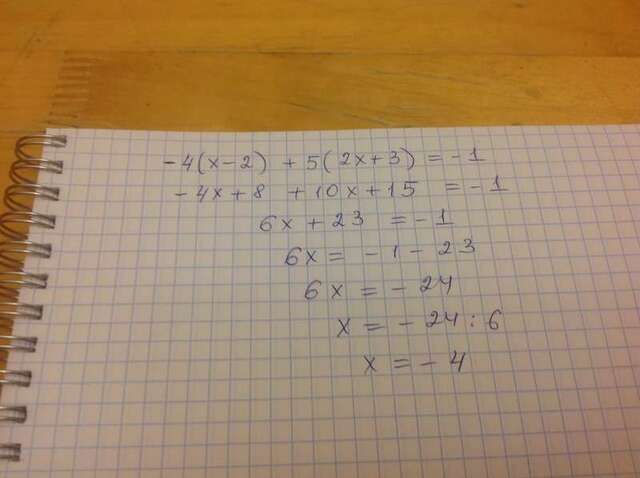 -4(x-2) +5(2x+3) = -1
-4x+8 +10x+15 = -1
6x+23 = -1
6x = -1-23
6x = -24
x = -24:6
x = -4